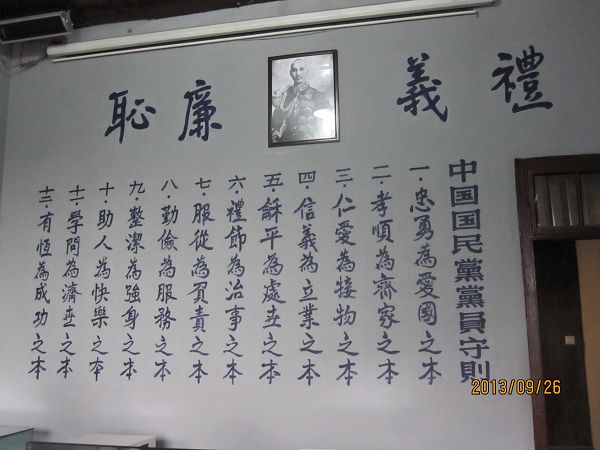 禮義廉恥
中国国民黨黨員守則
一·忠勇為愛國之本
二·孝順為齊家之本
三·仁愛為接物之本
四·信義為立業之本
五·龢平為處世之本
六·禮節為治事之本
七·服從為負責之本
八·勤儉為服務之本
九·整潔為強身之本
十·助人為快樂之本
十一·學問為濟世之本
十二·有恆為成功之本
2013/09/26